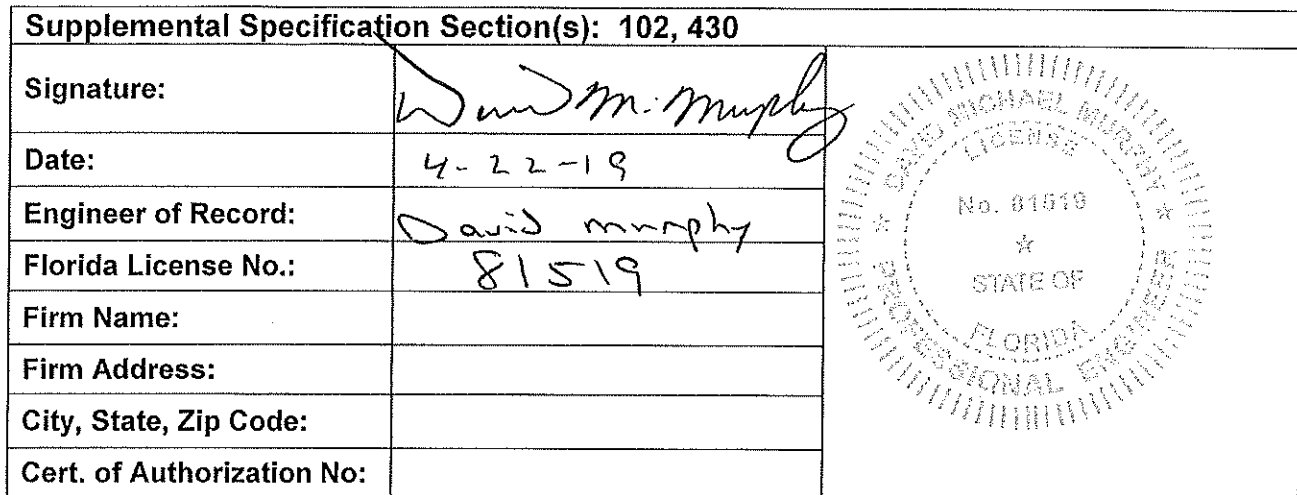 Supplemental Specification Section(s): 102, 430
Signature: David M. Murphy
Date: 4-22-19
Engineer of Record: David Murphy
Florida License No.: 81519
Firm Name:
Firm Address:
City, State, Zip Code:
Cert. of Authorization No:
DAVID MICHAEL MURPHY
LICENSE
No. 81519
STATE OF
FLORIDA
PROFESSIONAL ENGINEER